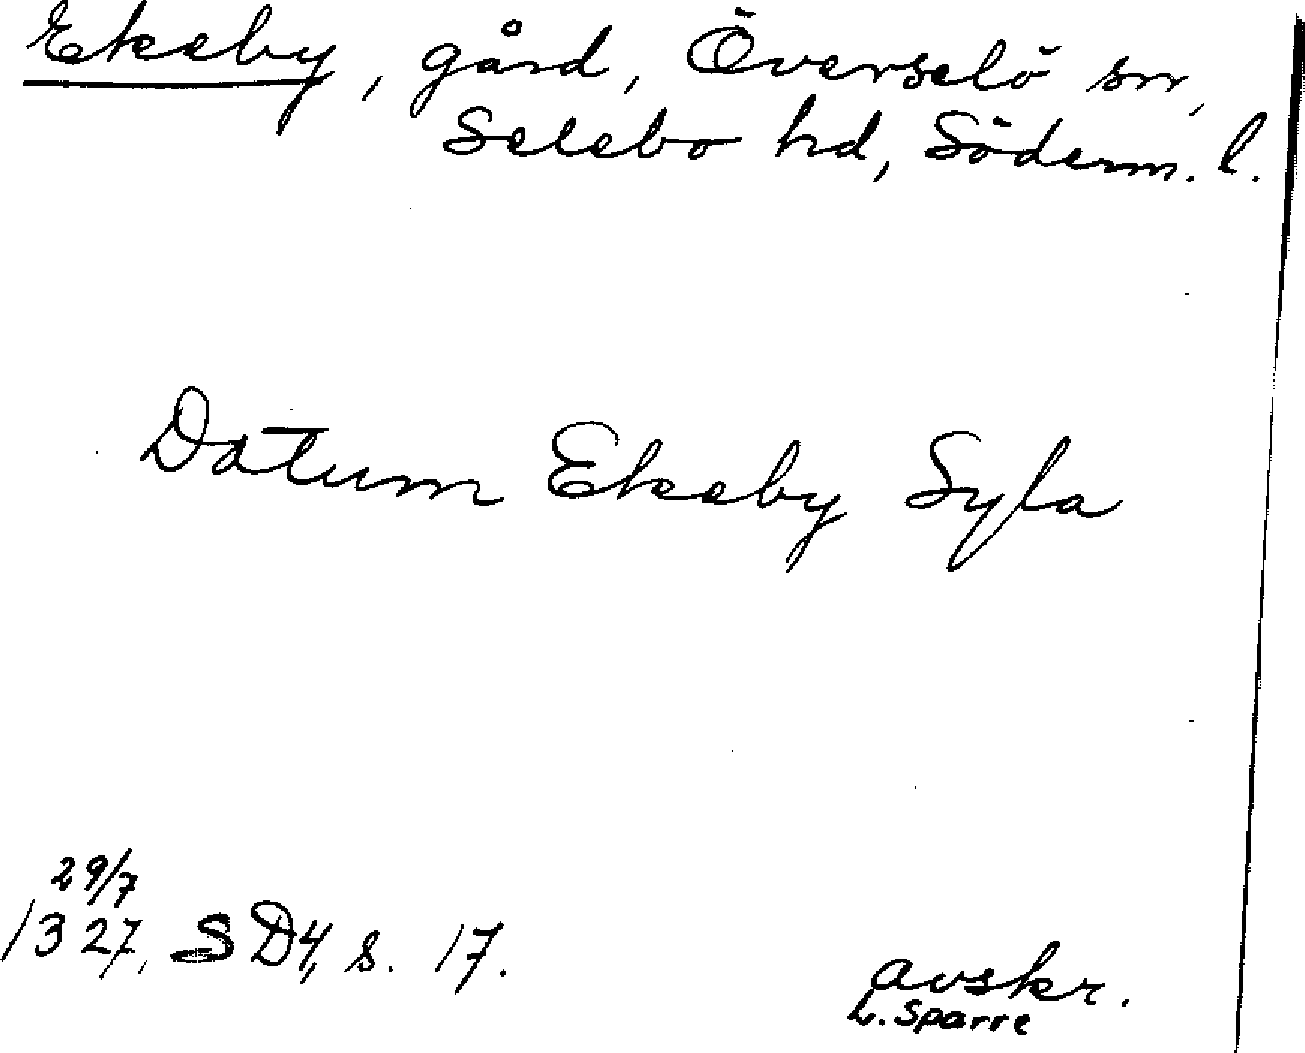 Ekeby, gård, Överselö sn,
Selebo hd, Söderm. l.
Datum Ekeby Syla
29/7
1327, SD4, s. 17.
avskr.
L. Sparre